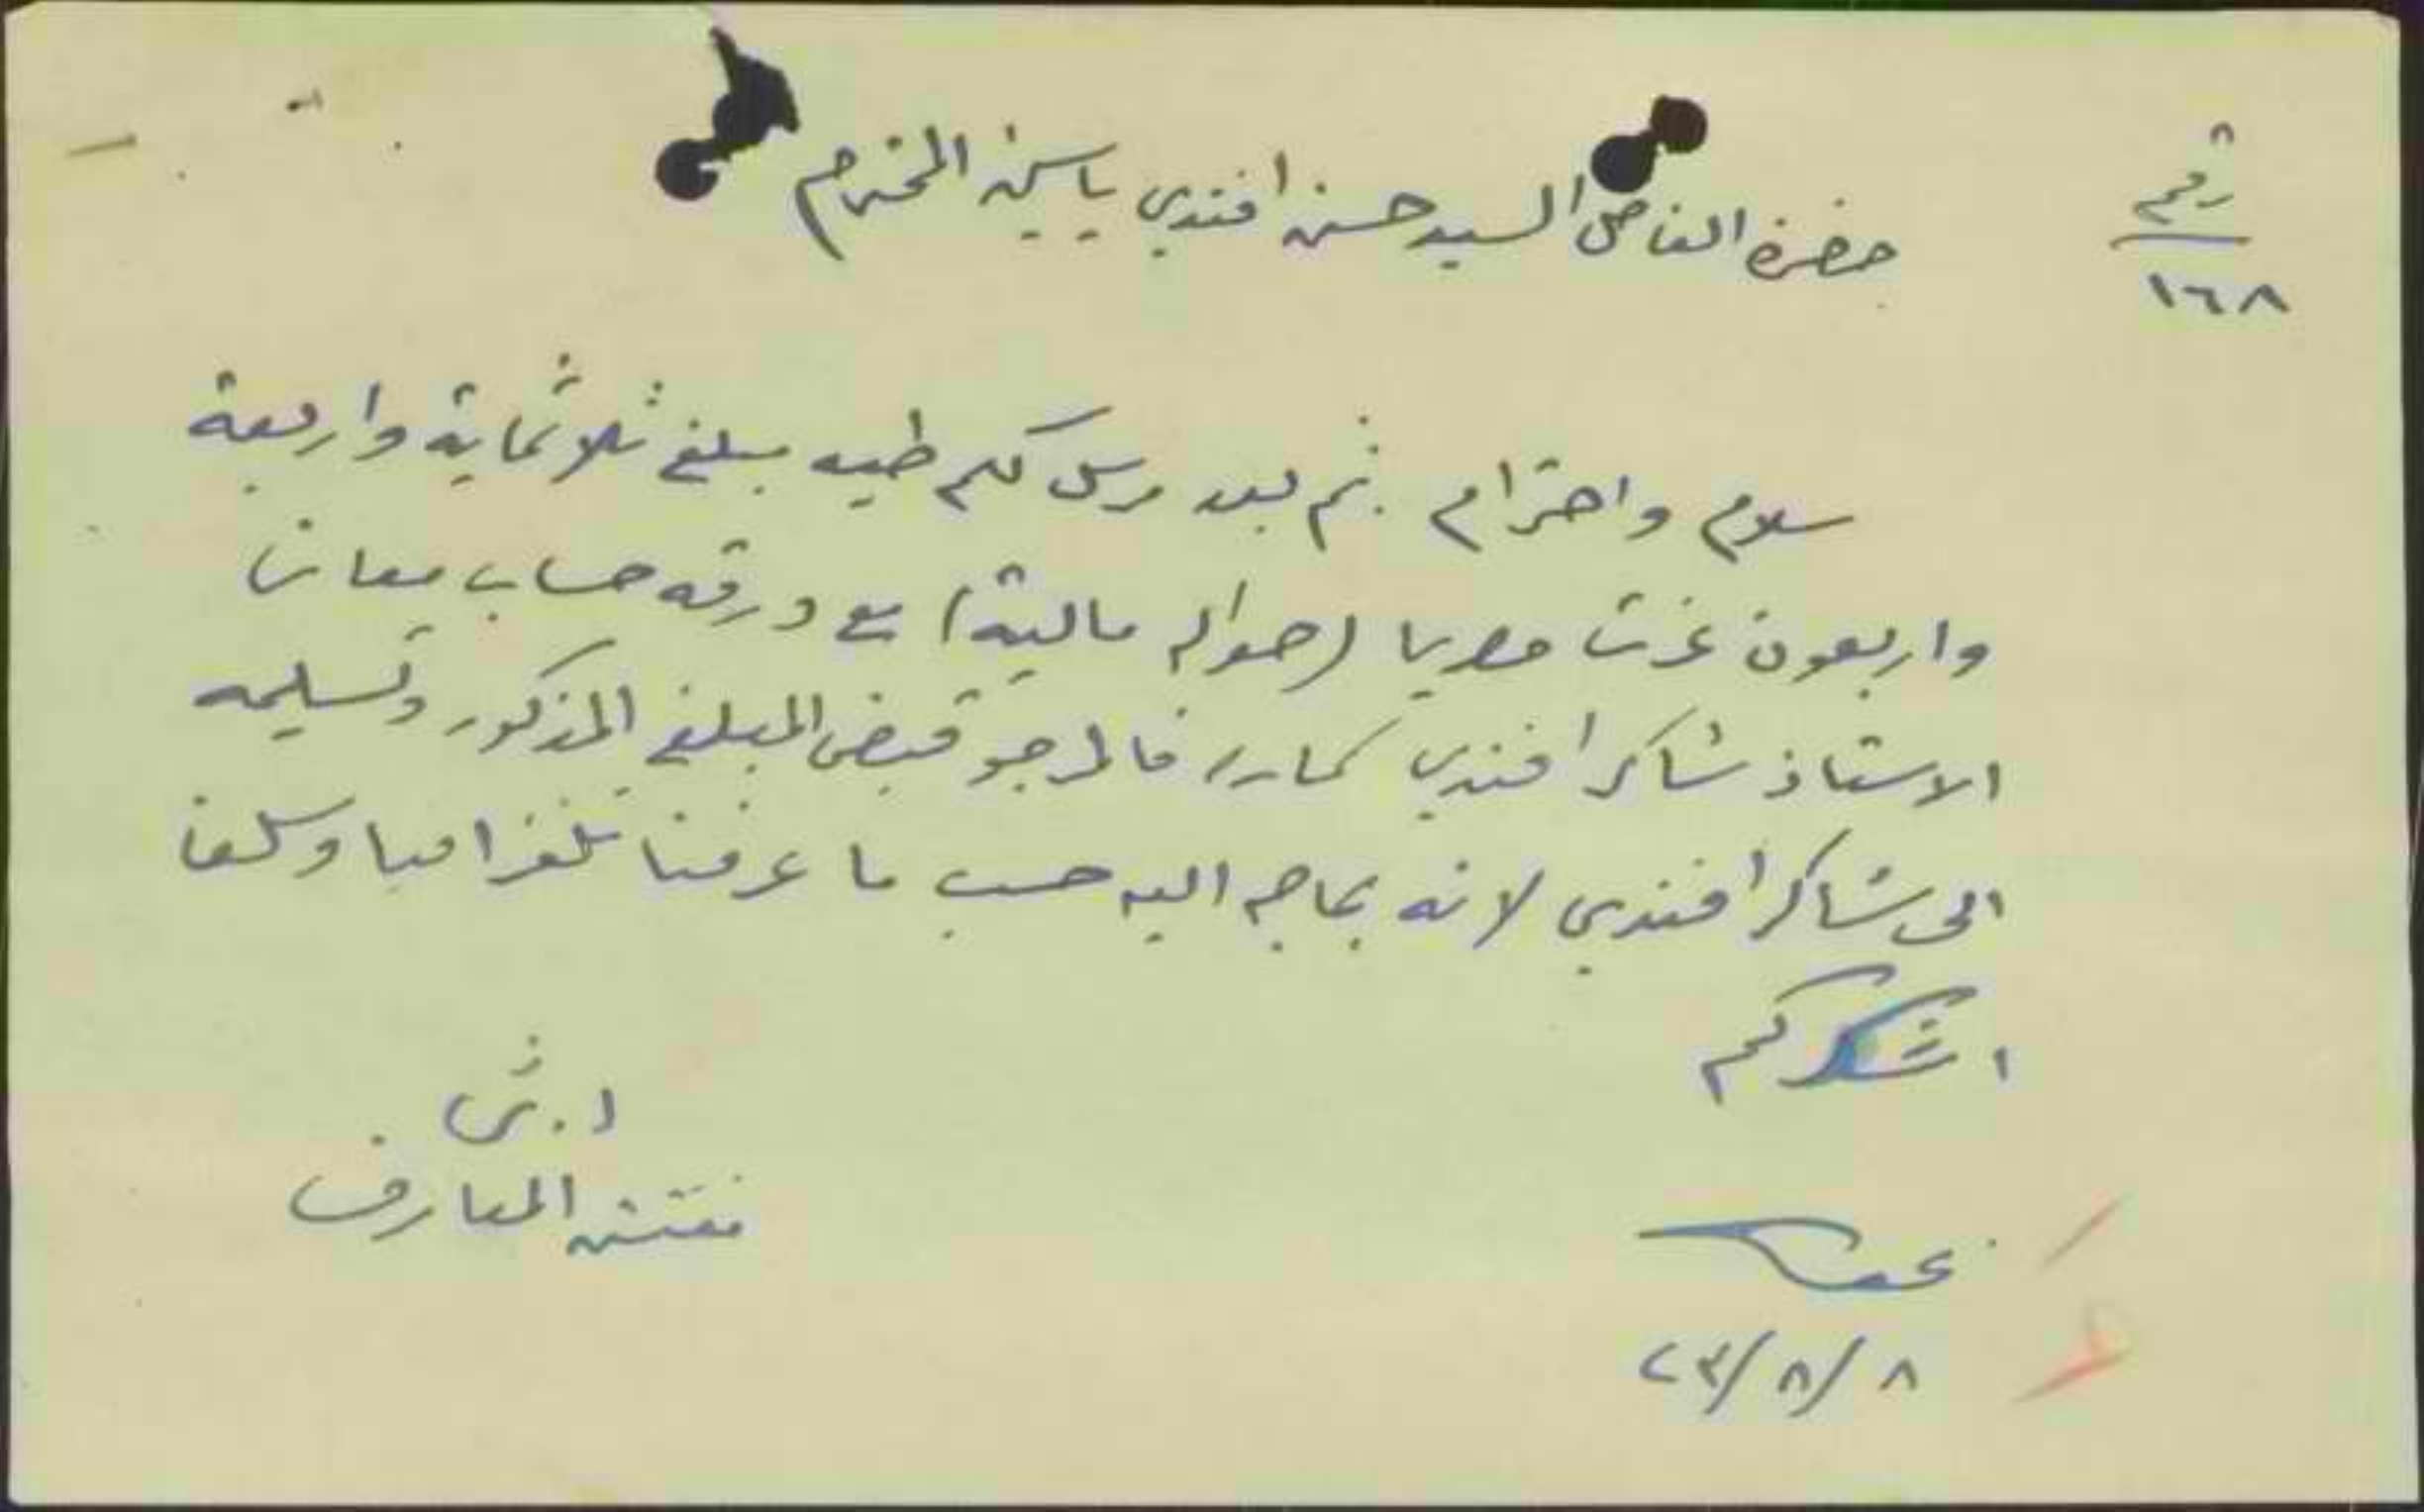 رقم
١٦٨
حضرة الفاضل السيد حسن افندي ياسين المحترم
سلام واحترام . ثم بعد مرسل لكم طيه مبلغ ثلاثماية واربعة
واربعون غرش مصريا (حواله مالية) مع ورقه حساب معاش
الاستاذ شاكر افندي فالمرجو قبض المبلغ المذكور وتسليمه
الى شاكر افندي لانه بحاجه اليه حسب ما عرفنا تلغرافيا وسلفا
اشكركم
مفتش المعارف
٢٣/٨/٨